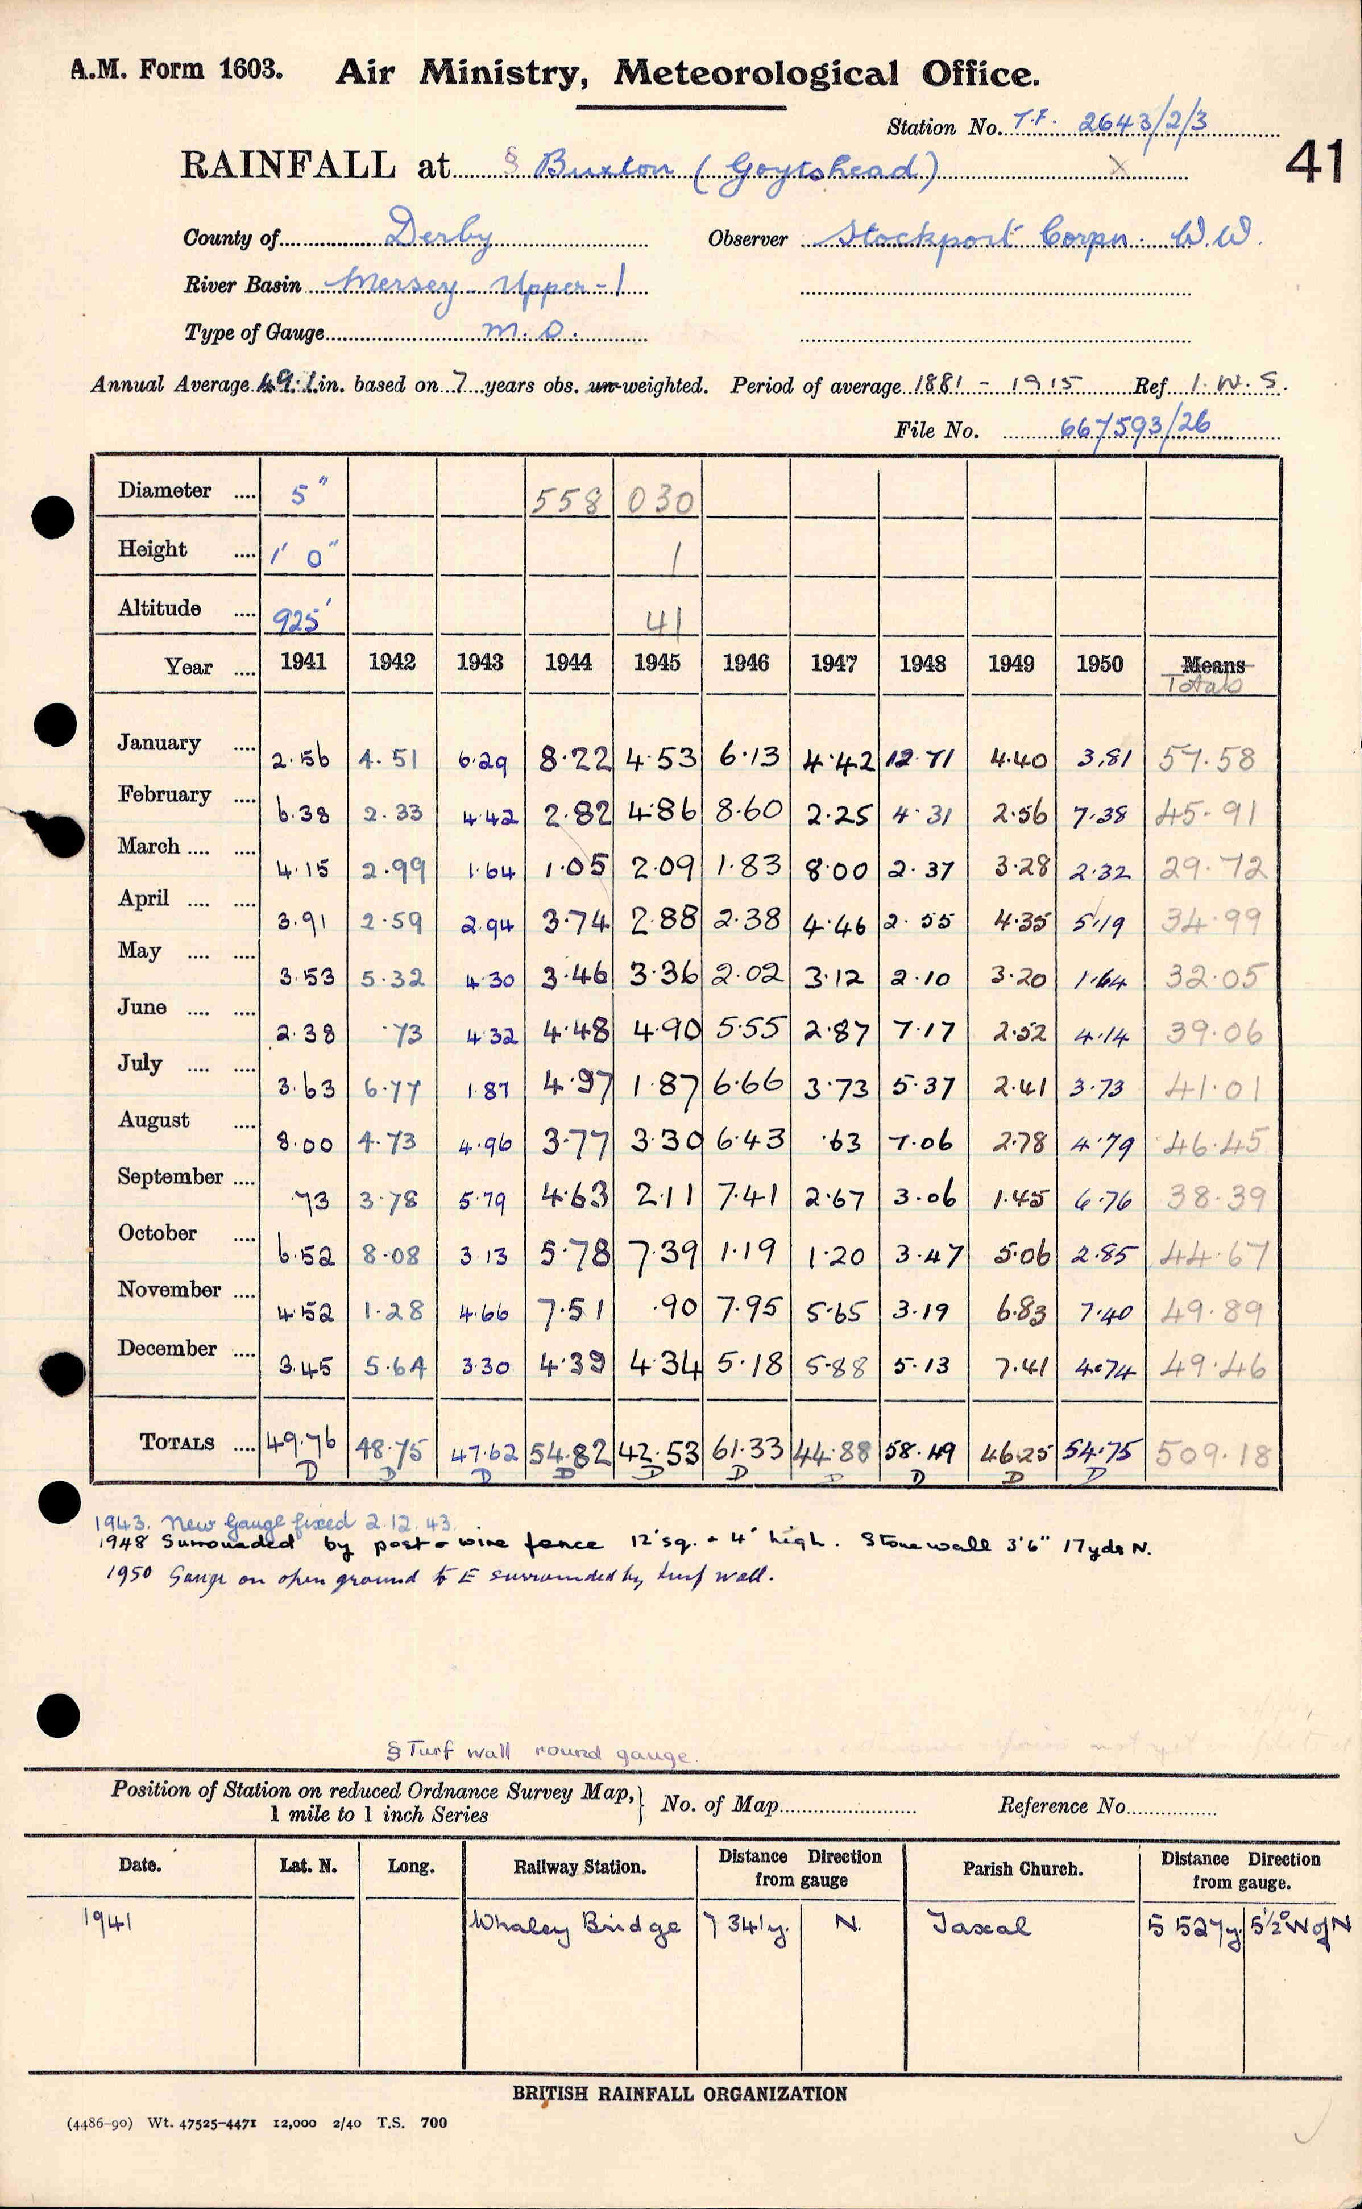 A.M. Form 1603. Air Ministry, Meteorological Office.
Station No. T.F. 2643/2/3
RAINFALL at § Buxton (Goytshead) X 41
County of Derby Observer Stockport Corpn. W.W.
River Basin Mersey Upper - 1
Type of Gauge M.O.
Annual Average 49.1 in. based on 7 years obs. un-weighted. Period of average 1881 - 1915 Ref I.W.S.
File No. 667593/26
Diameter .... 5" 558 030
Height .... 1' 0" 1
Altitude .... 925' 41
Year .... 1941 1942 1943 1944 1945 1946 1947 1948 1949 1950 Means
Totals
January .... 2.56 4.51 6.29 8.22 4.53 6.13 4.42 12.71 4.40 3.81 57.58
February .... 6.38 2.33 4.42 2.82 4.86 8.60 2.25 4.31 2.56 7.38 45.91
March .... .... 4.15 2.99 1.64 1.05 2.09 1.83 8.00 2.37 3.28 2.32 29.72
April .... .... 3.91 2.59 2.94 3.74 2.88 2.38 4.46 2.55 4.35 5.19 34.99
May .... .... 3.53 5.32 4.30 3.46 3.36 2.02 3.12 2.10 3.20 1.64 32.05
June .... .... 2.38 .73 4.32 4.48 4.90 5.55 2.87 7.17 2.52 4.14 39.06
July .... .... 3.63 6.77 1.87 4.97 1.87 6.66 3.73 5.37 2.41 3.73 41.01
August .... 8.00 4.73 4.96 3.77 3.30 6.43 .63 7.06 2.78 4.79 46.45
September .... .73 3.78 5.79 4.63 2.11 7.41 2.67 3.06 1.45 6.76 38.39
October .... 6.52 8.08 3.13 5.78 7.39 1.19 1.20 3.47 5.06 2.85 44.67
November .... 4.52 1.28 4.66 7.51 .90 7.95 5.65 3.19 6.83 7.40 49.89
December .... 3.45 5.64 3.30 4.39 4.34 5.18 5.88 5.13 7.41 4.74 49.46
TOTALS .... 49.76 48.75 47.62 54.82 42.53 61.33 44.88 58.49 46.25 54.75 509.18
D D D D D D D D D D
1943. New Gauge fixed 2.12.43.
1948 Surrounded by post & wire fence 12' sq. & 4' high. Stone wall 3'6" 17yds N.
1950 Gauge on open ground to E surrounded by turf wall.
§ Turf wall round gauge.
Position of Station on reduced Ordnance Survey Map, } No. of Map Reference No.
1 mile to 1 inch Series
Date. Lat. N. Long. Railway Station. Distance Direction from gauge Parish Church. Distance Direction from gauge.
1941 Whaley Bridge 7 341y. N. Taxal 5 527y. 5½° W of N
BRITISH RAINFALL ORGANIZATION
(4486-90) Wt. 47525-4471 12,000 2/40 T.S. 700